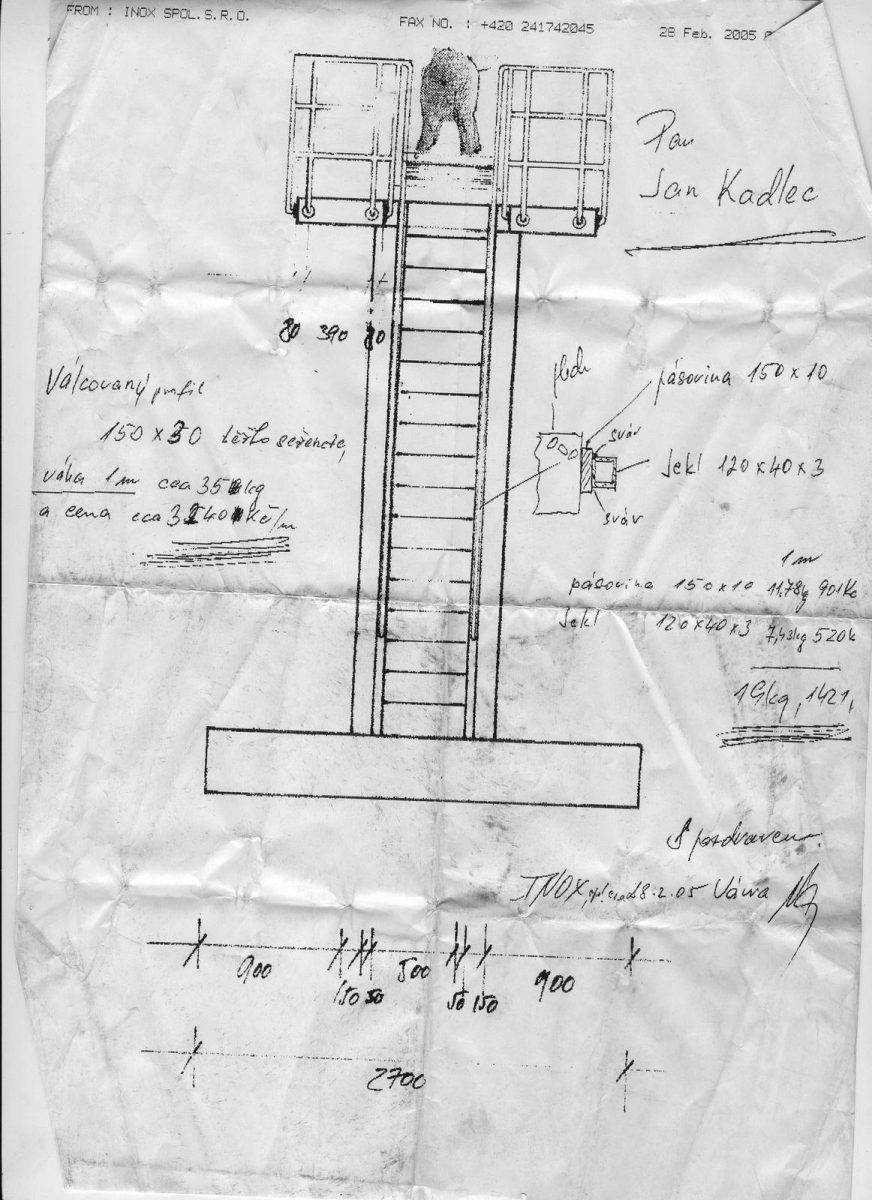 FROM : INOX SPOL.S.R.O.
FAX NO. : +420 241742045
28 Feb. 2005
Pan
Jan Kadlec
80 390 80
Válcovaný profil
150 x 30 těžko seženete,
váha 1m cca 35 kg
a cena cca 3240 Kč/m
plech
pásovina 150 x 10
svár
Jekl 120 x 40 x 3
svár
1 m
pásovina 150 x 10 11,78kg 901Kč
Jekl 120 x 40 x 3 7,43kg 520k
19kg, 1421,
S pozdravem
INOX, 28.2.05 Vávra
900 150 50 500 50 150 900
2700